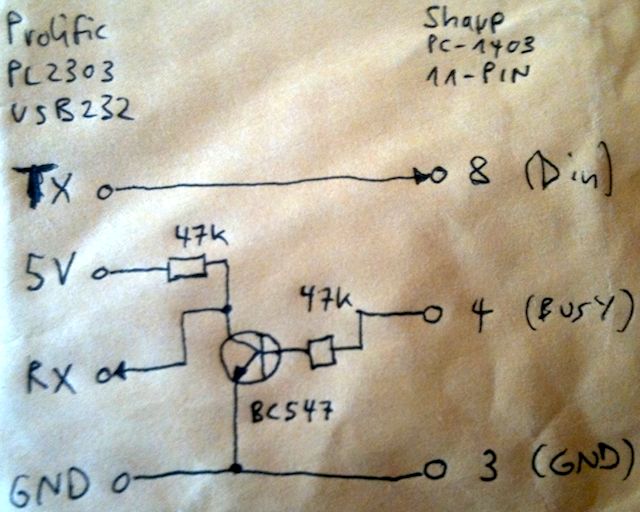 Prolific
PL2303
USB232
Sharp
PC-1403
11-PIN
TX
8 (Din)
47k
5V
47k
4 (BUSY)
RX
BC547
GND
3 (GND)